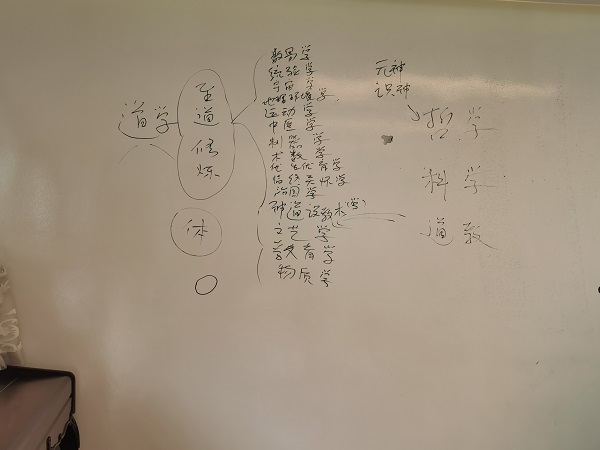 道学
至道修炼
体
数易学
经验学
宇宙学
地理环境学
运动学
中医学
制器学
术数学
优生优育学
临终关怀学
治国学
神道设教术(学)
文艺学
教育学
物质学
元神
识神
哲学
科学
道教